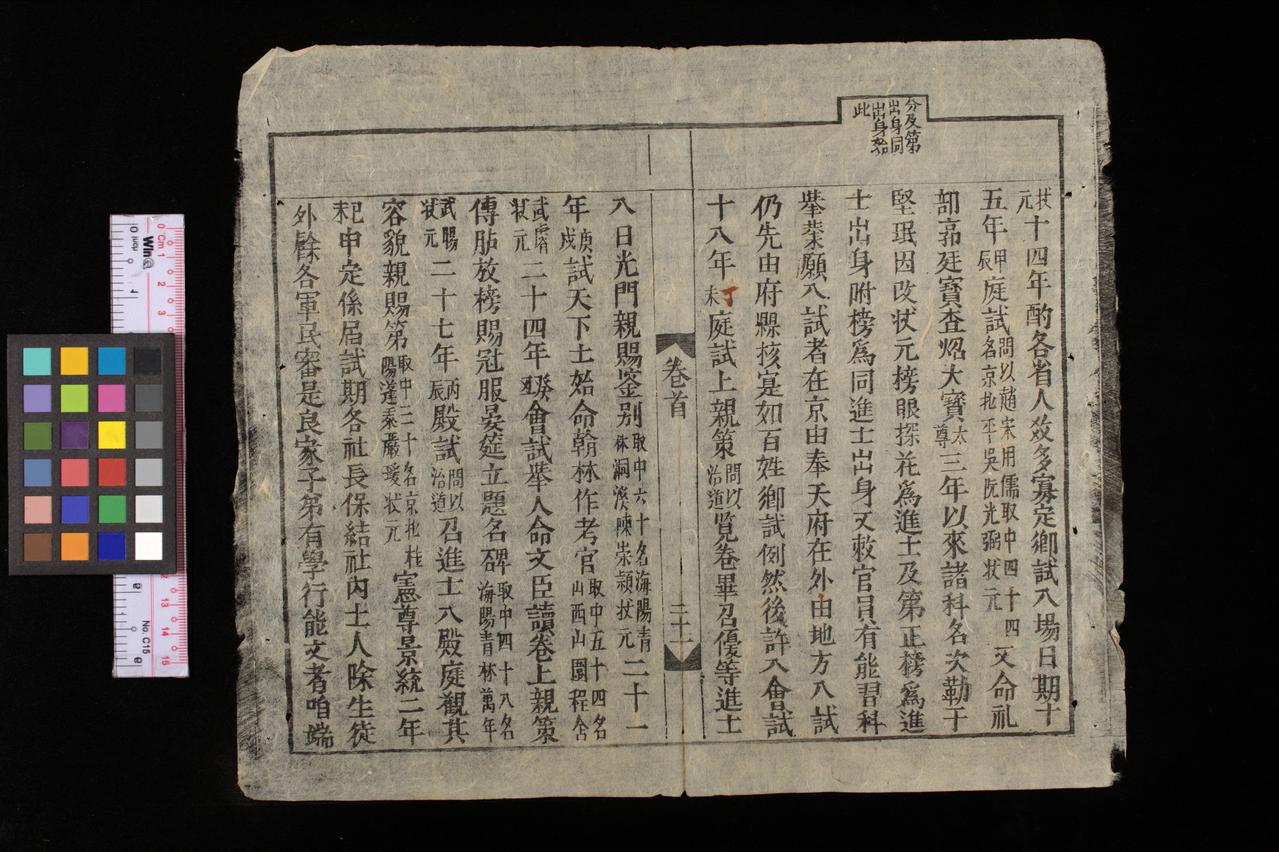 分及第
出身同
出身始
此
状元十四年酌各省人数多寡定鄉試入場日期十
五年甲辰庭試問以趙宋用儒取中四十四名京北平吳阮光弼状元又命礼
部郭廷寳查炤大寳太尊三年以來諸科名次勒于
堅珉因改状元榜眼探花爲進士及第正榜爲進
士出身附榜爲同進士出身又敕官員有能習科
舉業願入試者在京由奉天府在外由地方入試
仍先由府縣核寔如百姓鄉試例然後許入會試
十八年丁未庭試上親策問以治道覧卷畢召優等進士
卷首
二十一
入日光門親賜鉴别取中六十名海陽青林洞溪陳崇頴状元二十一
年庚戌試天下士始命翰林作考官取中五十四名山西山圍程舍
武睿状元二十四年癸丑會試舉人命文臣讀卷上親策
傳胪放榜賜冠服晏筵立題名碑取中四十八名海陽青林萬年
武暘状元二十七年丙辰殿試問以治道召進士入殿庭觀其
容貌親賜第取中三十名京北桂陽蓬萊嚴瑗状元憲尊景統二年
己未申定係届試期各社長保結社内士人除生徒
外餘各軍民審是良家子第有學行能文者咱端